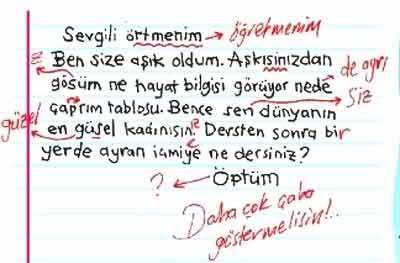 Sevgili örtmenim → öğretmenim
z Ben size aşık oldum. Aşkısinızdan
gösüm ne hayat bilgisi görüyor nede de ayrı
çaprım tablosu. Bence sen dünyanın siz
güzel en güsel kadınısın. ? Dersten sonra bir
yerde ayran içmiye ne dersiniz?
? ← Öptüm
Daha çok çaba
göstermelisin!..